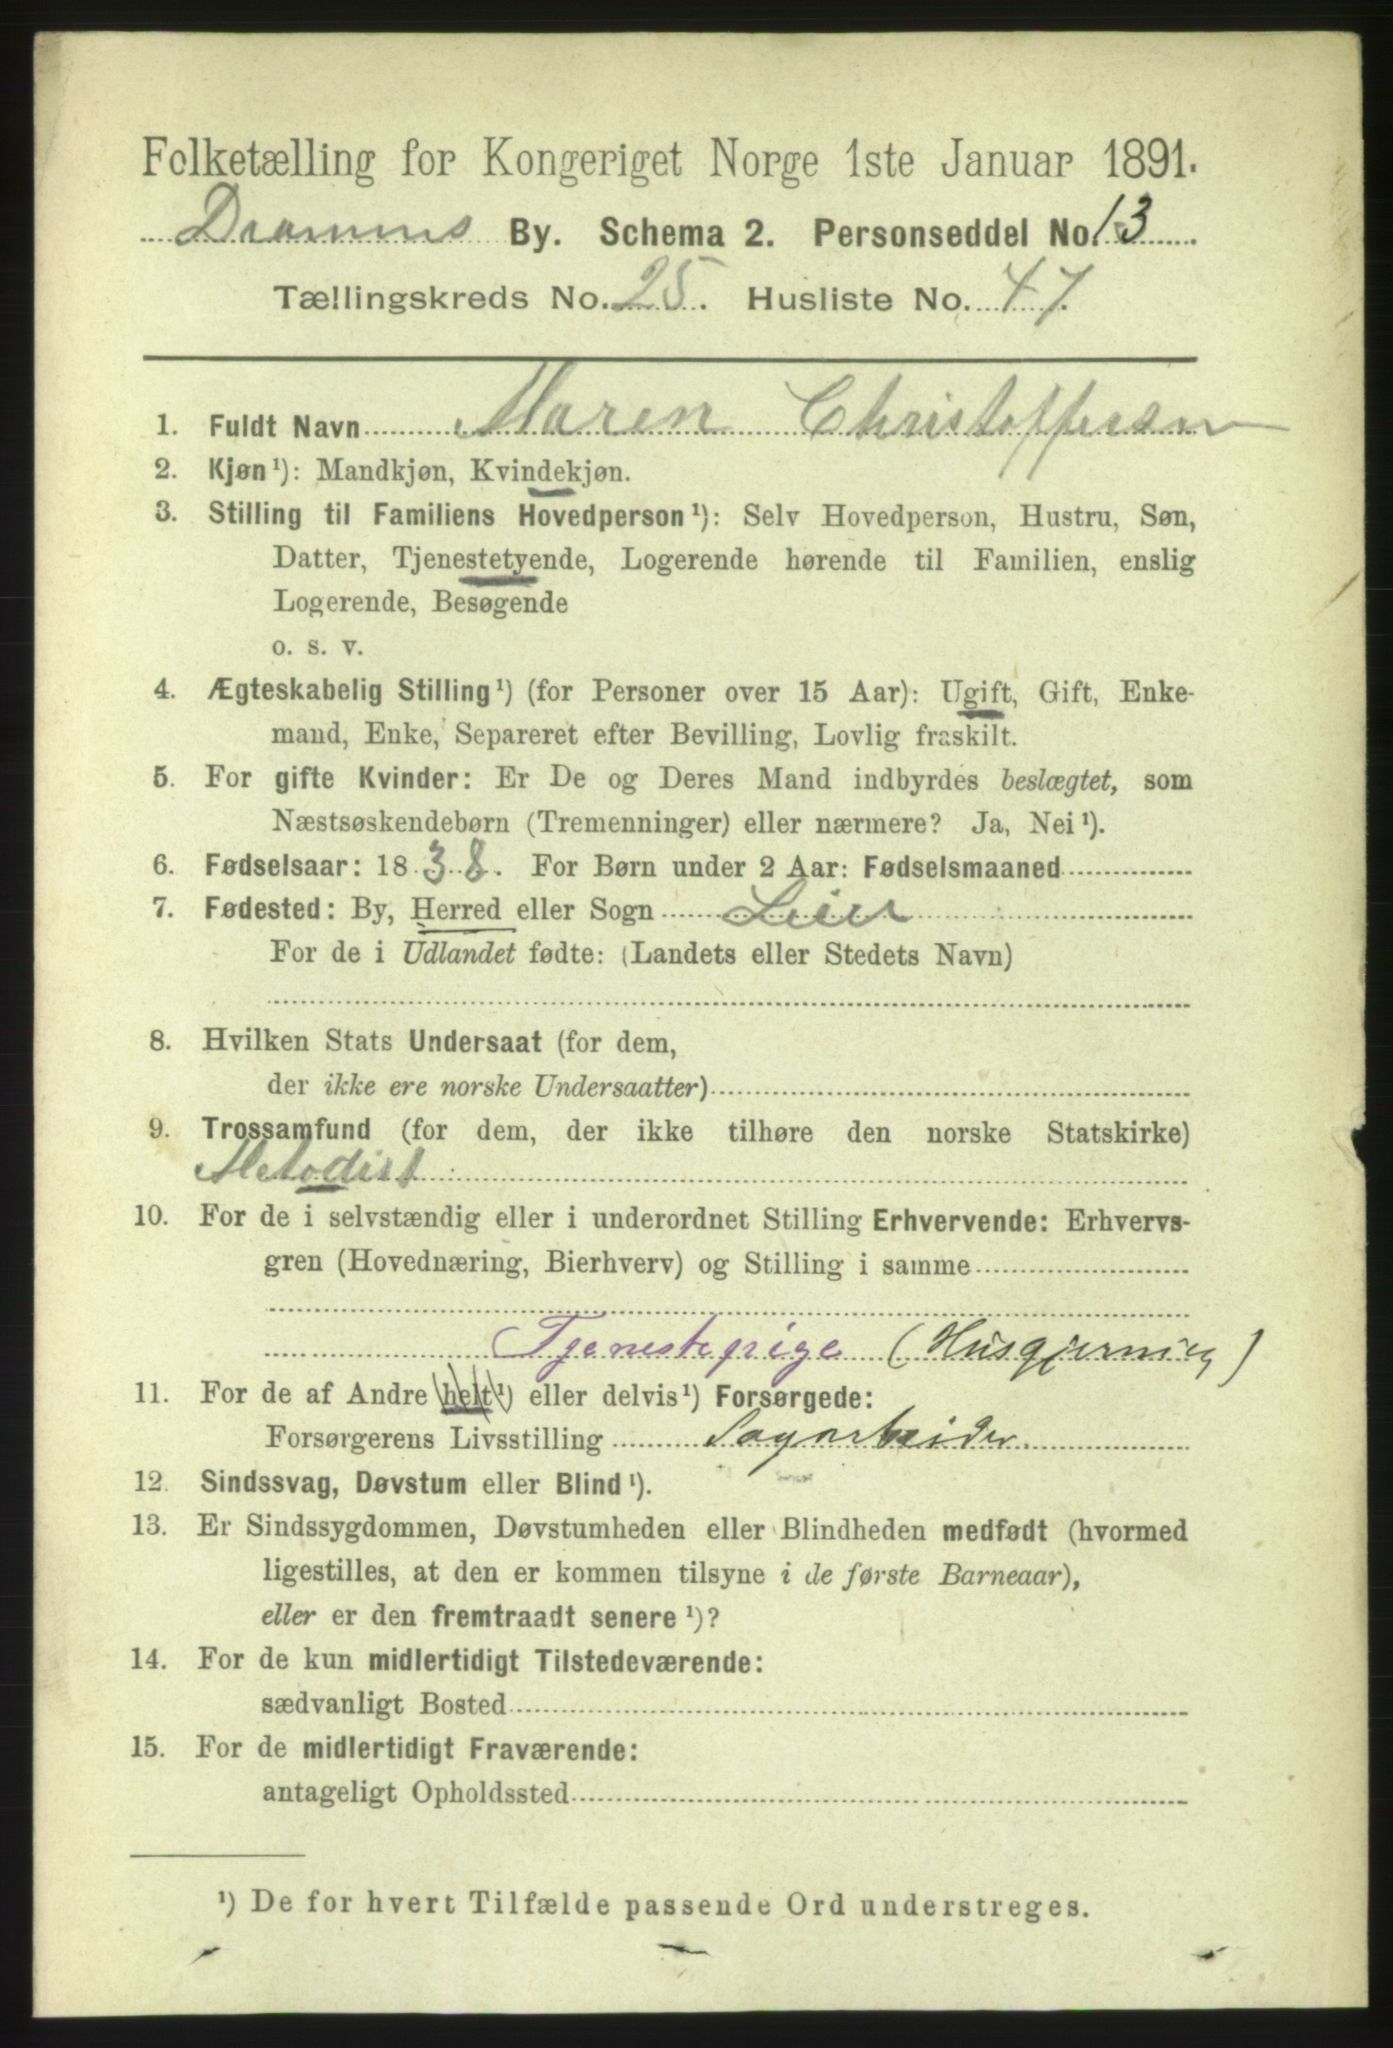 Folketælling for Kongeriget Norge 1ste Januar 1891.
Drammens By. Schema 2. Personseddel No. 13
Tællingskreds No. 25. Husliste No. 47.
1. Fuldt Navn Maren Christoffersen
2. Kjøn¹): Mandkjøn, Kvindekjøn.
3. Stilling til Familiens Hovedperson¹): Selv Hovedperson, Hustru, Søn,
Datter, Tjenestetyende, Logerende hørende til Familien, enslig
Logerende, Besøgende
o. s. v.
4. Ægteskabelig Stilling¹) (for Personer over 15 Aar): Ugift, Gift, Enke-
mand, Enke, Separeret efter Bevilling, Lovlig fraskilt.
5. For gifte Kvinder: Er De og Deres Mand indbyrdes beslægtet, som
Næstsøskendebørn (Tremenninger) eller nærmere? Ja, Nei¹).
6. Fødselsaar: 1838. For Børn under 2 Aar: Fødselsmaaned
7. Fødested: By, Herred eller Sogn Lier
For de i Udlandet fødte: (Landets eller Stedets Navn)
8. Hvilken Stats Undersaat (for dem,
der ikke ere norske Undersaatter)
9. Trossamfund (for dem, der ikke tilhøre den norske Statskirke)
Metodist
10. For de i selvstændig eller i underordnet Stilling Erhvervende: Erhvervs-
gren (Hovednæring, Bierhverv) og Stilling i samme
Tjenestepige (Husgjerning)
11. For de af Andre (helt¹) eller delvis¹) Forsørgede:
Forsørgerens Livsstilling Sagarbeider
12. Sindssvag, Døvstum eller Blind¹).
13. Er Sindssygdommen, Døvstumheden eller Blindheden medfødt (hvormed
ligestilles, at den er kommen tilsyne i de første Barneaar),
eller er den fremtraadt senere¹)?
14. For de kun midlertidigt Tilstedeværende:
sædvanligt Bosted
15. For de midlertidigt Fraværende:
antageligt Opholdssted
¹) De for hvert Tilfælde passende Ord understreges.